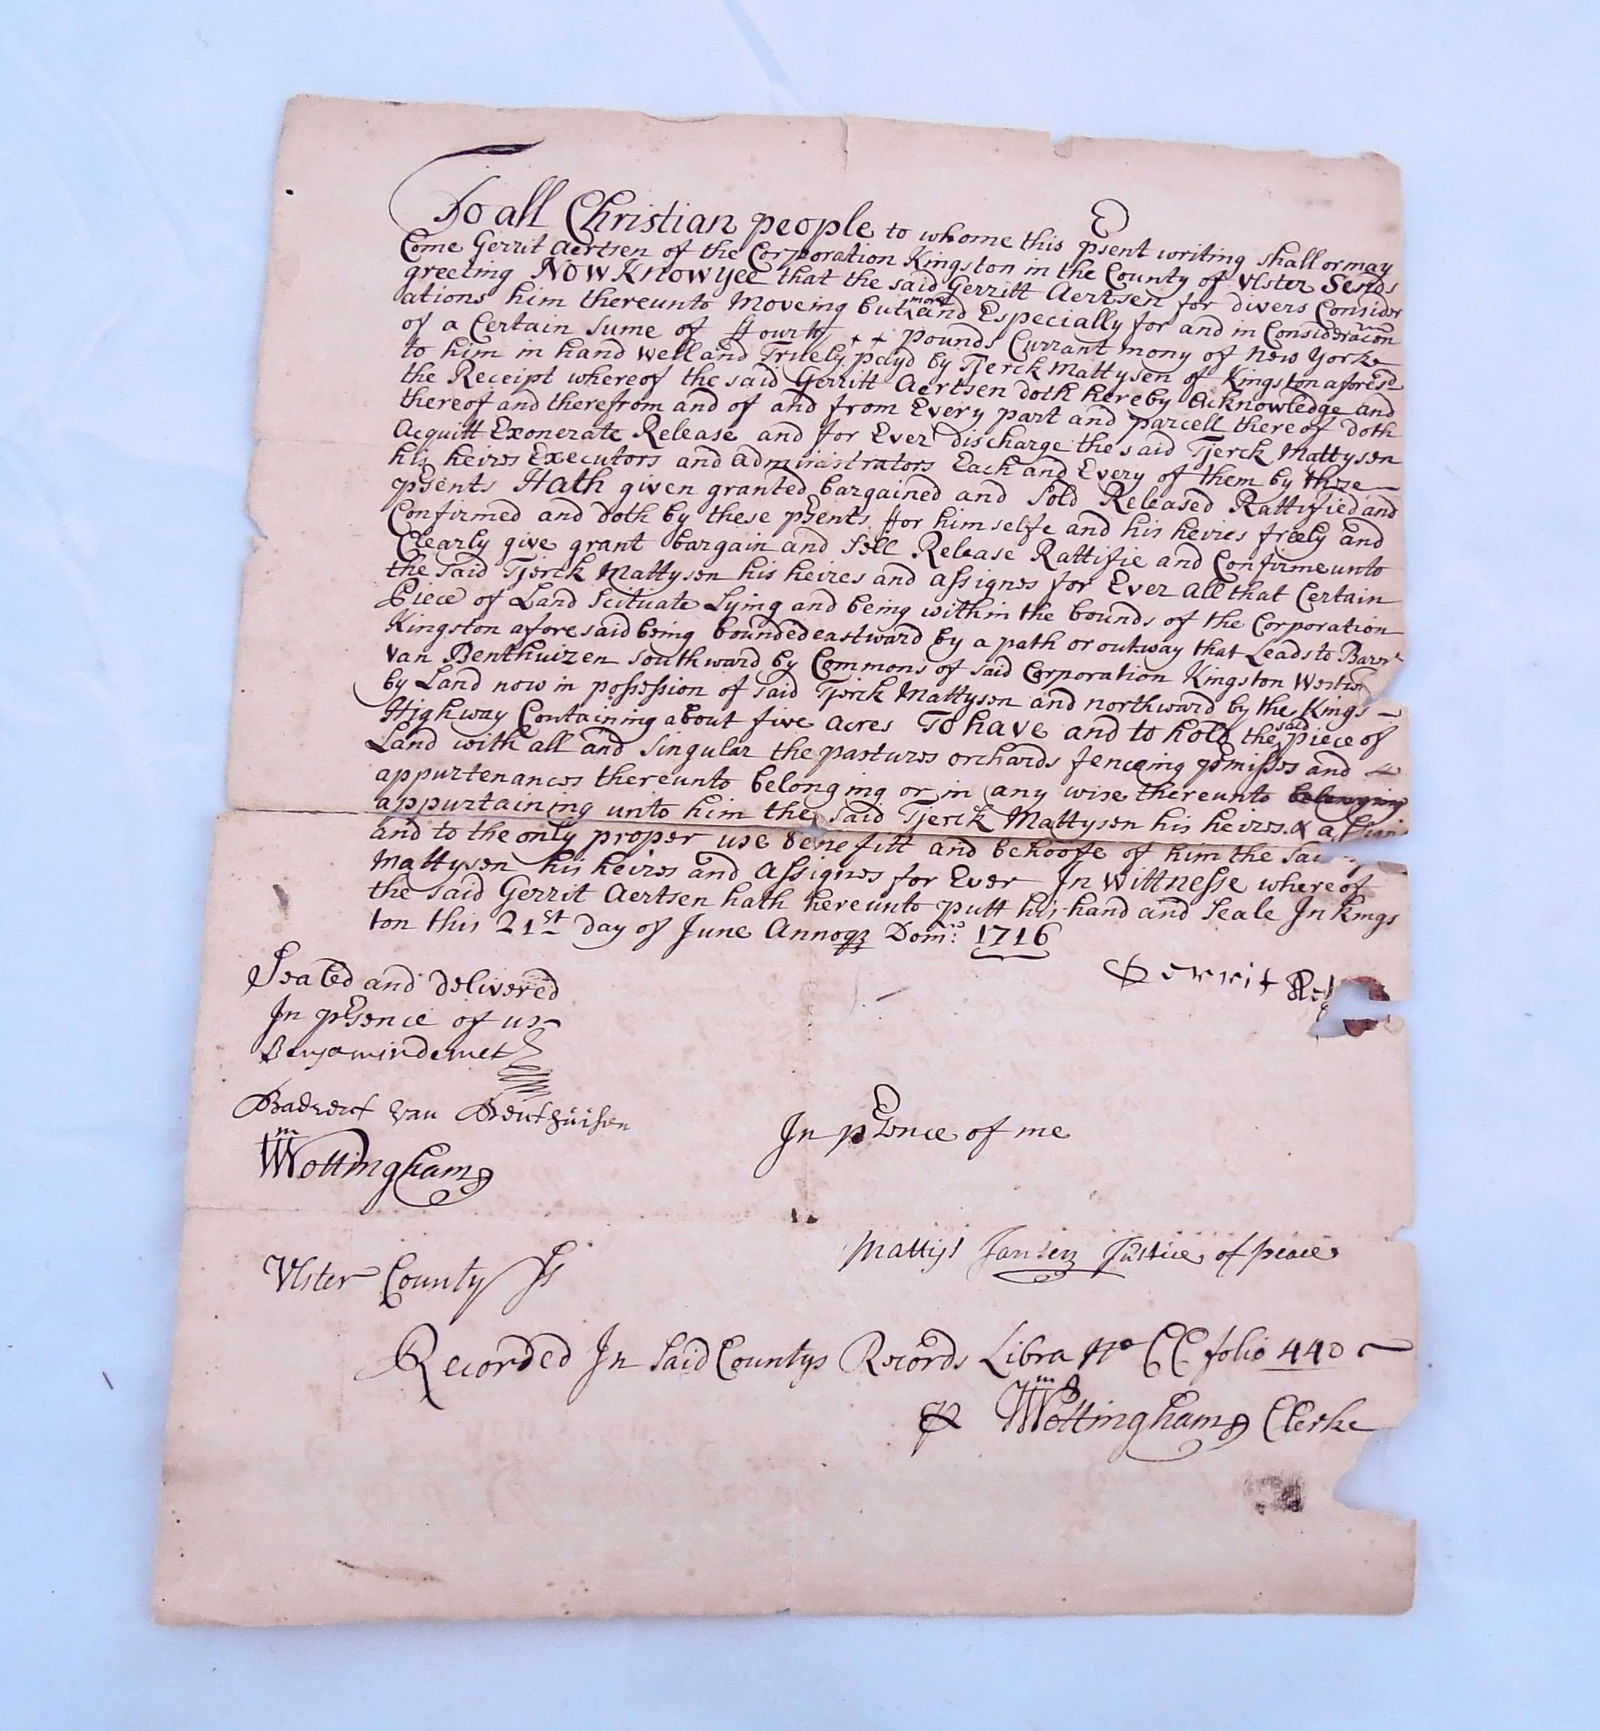 To all Christian people to whome this psent writing shall or may
Come Gerrit Aertsen of the Corporation Kingston in the County of Ulster Sends
greeting NOW Know yee that the said Gerritt Aertsen for divers Consider
ations him thereunto Moveing but more and Especially for and in Consideracon
of a Certain Sume of ffourty pounds Currant mony of New Yorke
to him in hand well and Truely payd by Tjerck Mattysen of Kingston aforesd
the Receipt whereof the said Gerritt Aertsen doth hereby Acknowledge and
thereof and therefrom and of and from Every part and parcell thereof doth
Acquitt Exonerate Release and for Ever discharge the said Tjerck Mattysen
his heires Executors and Administrators Each and Every of them by these
psents Hath given granted bargained and Sold Released Rattified and
Confirmed and doth by these psents for himselfe and his heires freely and
Clearly give grant bargain and Sell Release Rattifie and Confirme unto
the said Tjerck Mattysen his heires and assignes for Ever All that Certain
Piece of Land Scituate Lying and being within the bounds of the Corporation
Kingston aforesaid being bounded eastward by a path or outway that Leads to Barnt
Van Benthuizen southward by Commons of said Corporation Kingston
by Land now in possession of said Tjerck Mattysen and northward by the Kings
Highway Containing about five acres To have and to hold the said piece of
Land with all and Singular the pastures orchards fenceing pmisses and
appurtenances thereunto belonging or in any wise thereunto belonging
appurtaining unto him the Said Tjerck Mattysen his heires &
and to the only proper use benefitt and behoofe of him the
Mattysen his heires and Assignes for Ever In Wittnesse whereof
the said Gerrit Aertsen hath hereunto putt his hand and Seale In Kings
ton this 21st day of June Annoq Dom: 1716
Gerrit
Sealed and delivered
In psence of us
Benjamin demet
Badrent van Benthuisen
Wm Nottingham
In psence of me
Mattys Jansen Justice of peace
Ulster County ss
Recorded In Said Countys Records Libra No CC folio 440
p Wm Nottingham Clerke